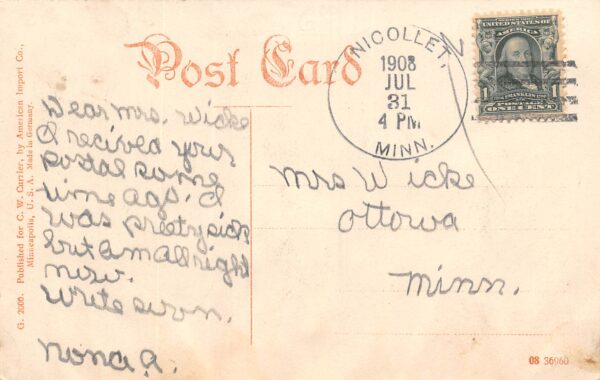 Post Card
NICOLLET,
1908
JUL
31
4 PM
MINN.
UNITED STATES OF
AMERICA
FRANKLIN
1 POSTAGE 1
ONE CENT
Dear Mrs. Wicke
I recived your
postal some
time ago. I
was preety sick
but am all right
now.
Write soon.
Nona A.
Mrs Wicke
Ottowa
Minn.
G. 2000. Published for C. W. Carrier, by American Import Co.,
Minneapolis, U. S. A. Made in Germany.
08 36960